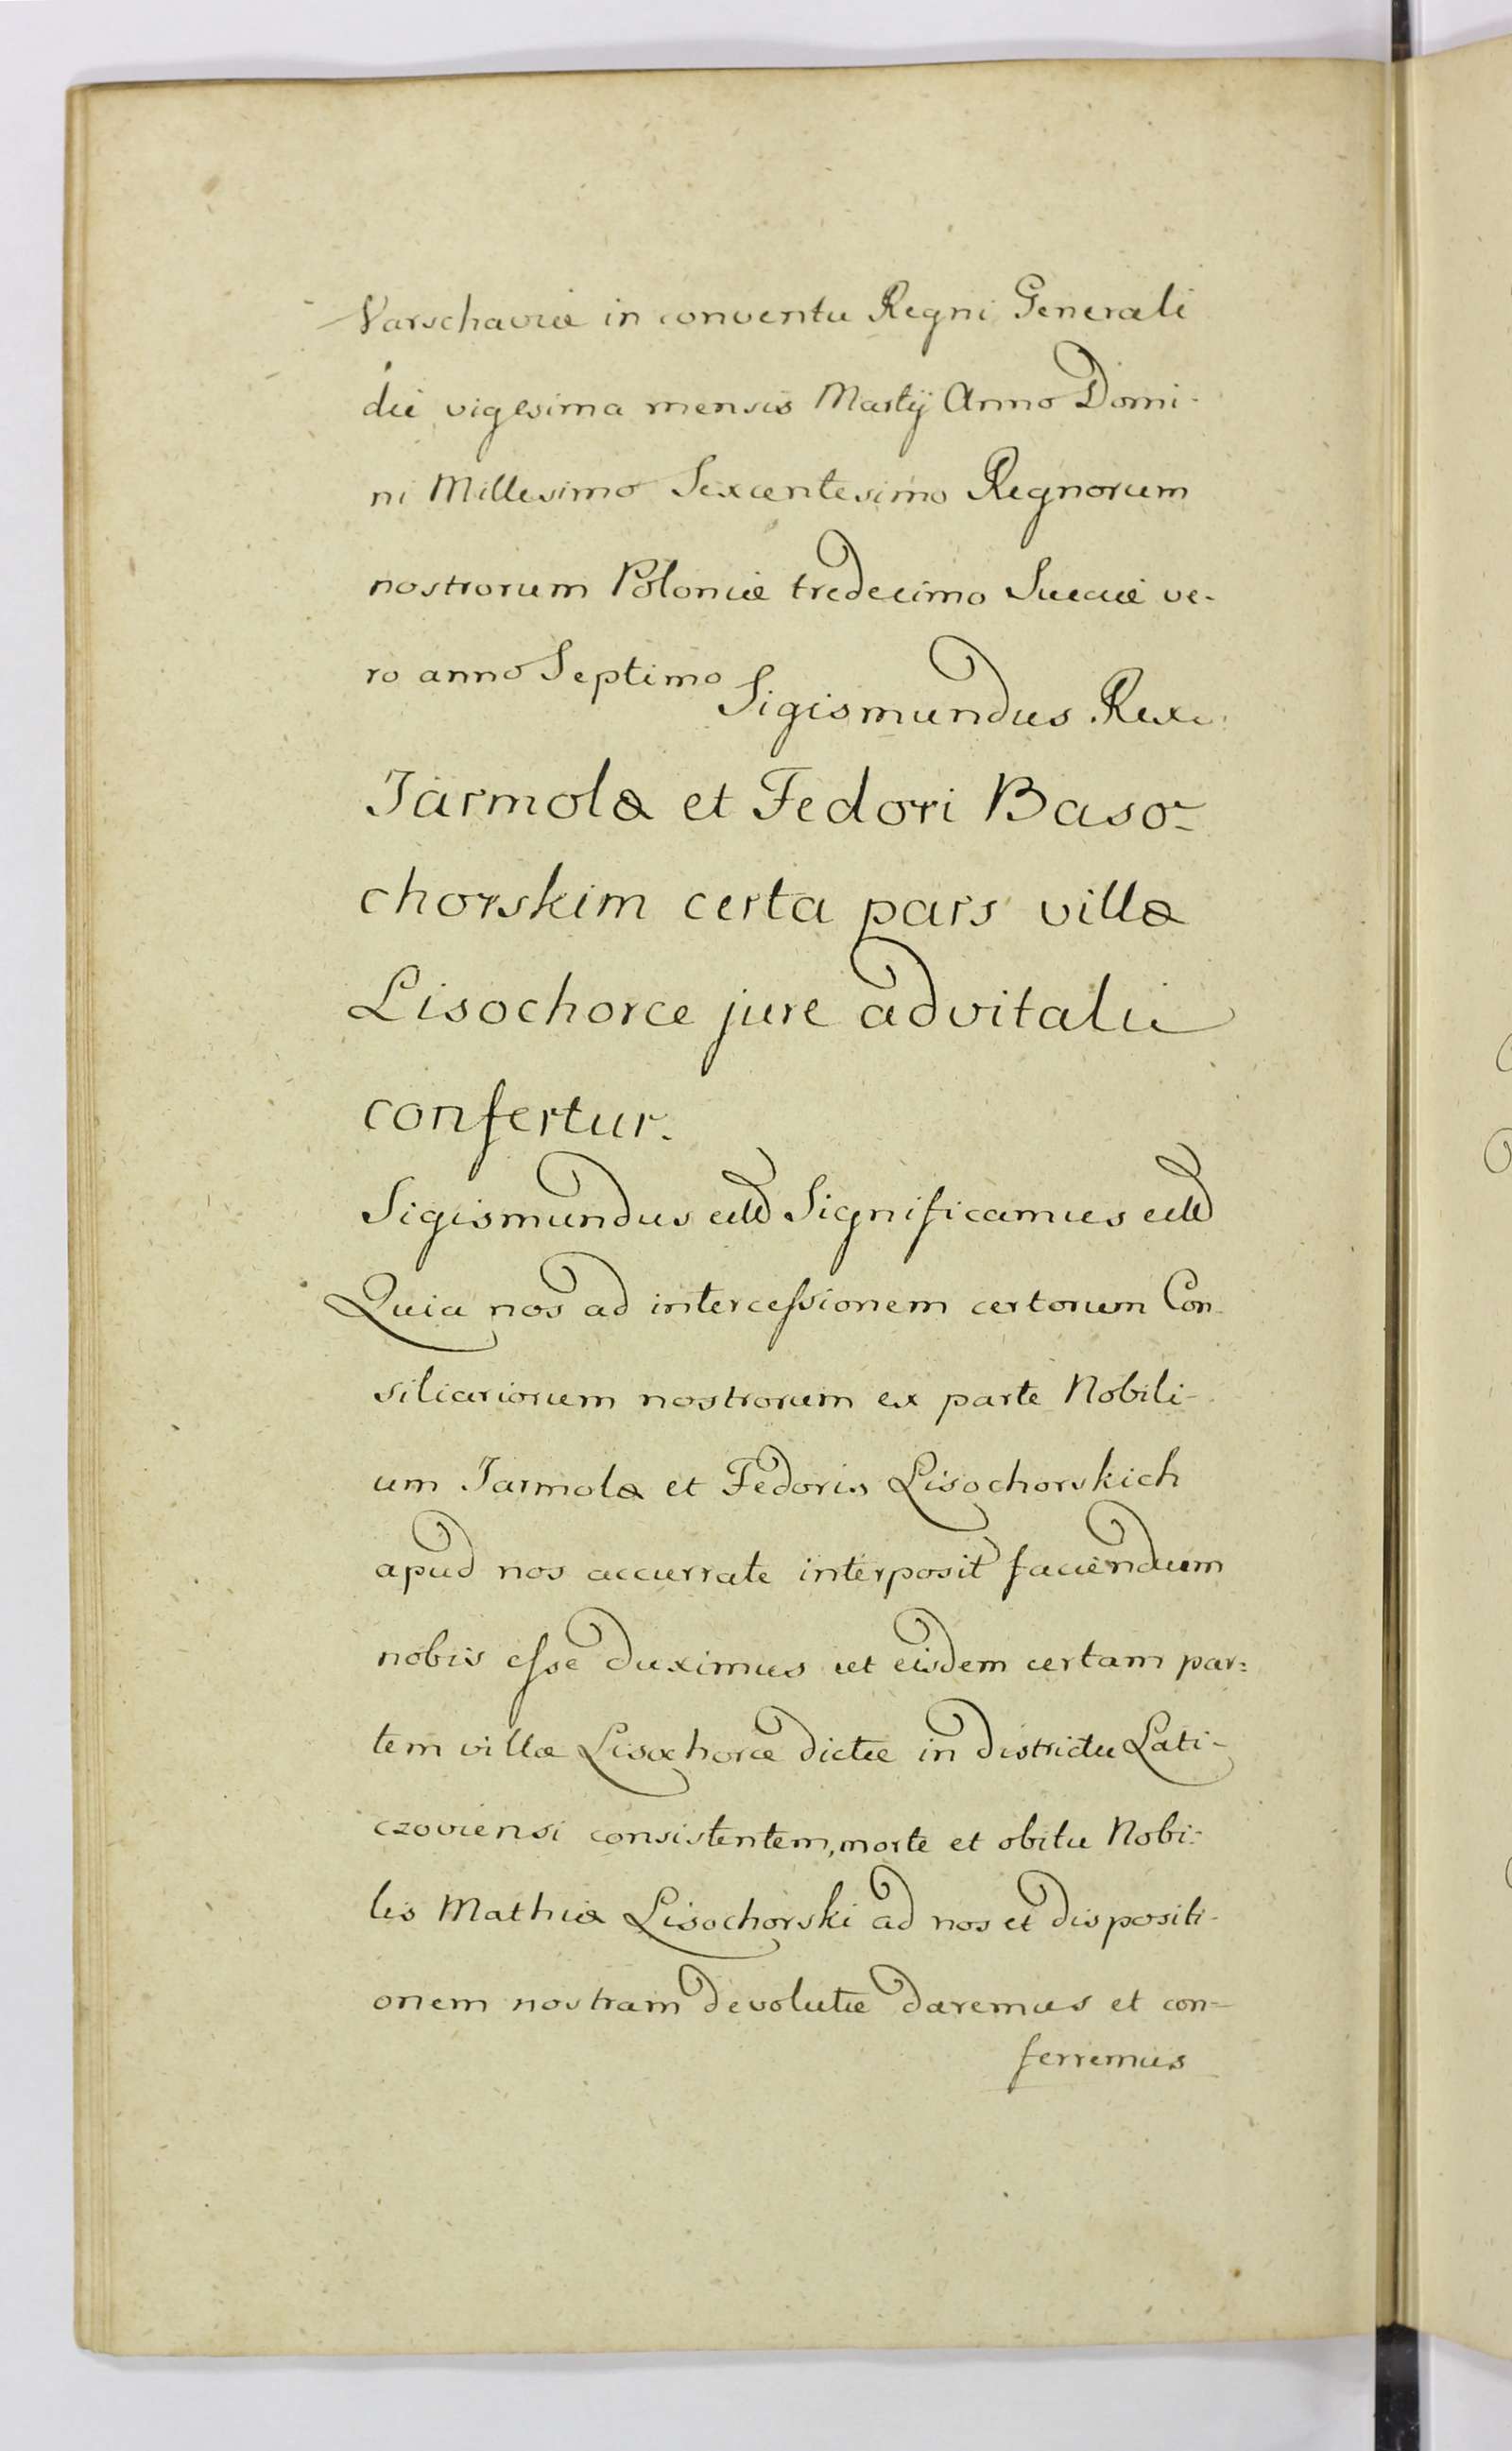 Varschaviæ in conventu Regni Generali
die vigesima mensis Martij Anno Domi-
ni Millesimo Sexcentesimo Regnorum
nostrorum Poloniæ tredecimo Sueciæ ve-
ro anno Septimo Sigismundus Rex.
Jarmolæ et Fedori Baso-
chorskim certa pars villæ
Lisochorce jure advitali
confertur.
Sigismundus Significamus
Quia nos ad intercessionem certorum Con-
siliariorum nostrorum ex parte Nobili-
um Jarmolæ et Fedoris Lisochorskich
apud nos accurrate interposit faciendum
nobis esse duximus ut eisdem certam par=
tem villæ Lisochorce dictæ in districtu Lati-
czoviensi consistentem, morte et obitu Nobi=
lis Mathiæ Lisochorski ad nos et dispositi-
onem nostram devolutæ daremus et con=
ferremus